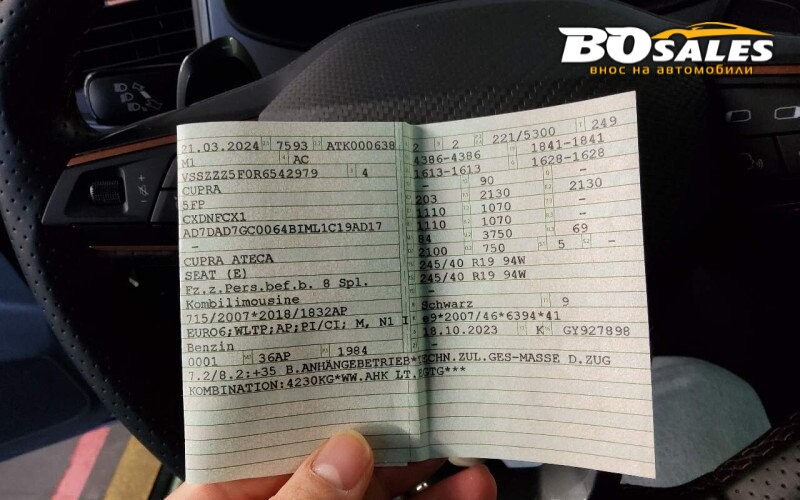 BOSALES
внос на автомобили
21.03.2024 7593 ATK000638
M1 AC
VSSZZZ5F0R6542979 4
CUPRA
5FP
CXDNFCX1
AD7DAD7GC0064BIML1C19AD17
-
CUPRA ATECA
SEAT (E)
Fz.z.Pers.bef.b. 8 Spl.
Kombilimousine
715/2007*2018/1832AP
EURO6;WLTP;AP;PI/CI; M, N1 I
Benzin
0001 36AP 1984
2 2 221/5300 249
4386-4386 1841-1841
1613-1613 1628-1628
- 90 -
203 2130 2130
1110 1070 -
1110 1070 -
84 3750 69
2100 750 5 -
245/40 R19 94W
245/40 R19 94W
-
-
Schwarz 9
e9*2007/46*6394*41
18.10.2023 K GY927898
-
7.2/8.2:+35 B.ANHÄNGEBETRIEB* ZUL.GES-MASSE D.ZUG
KOMBINATION:4230KG*WW.AHK LT.